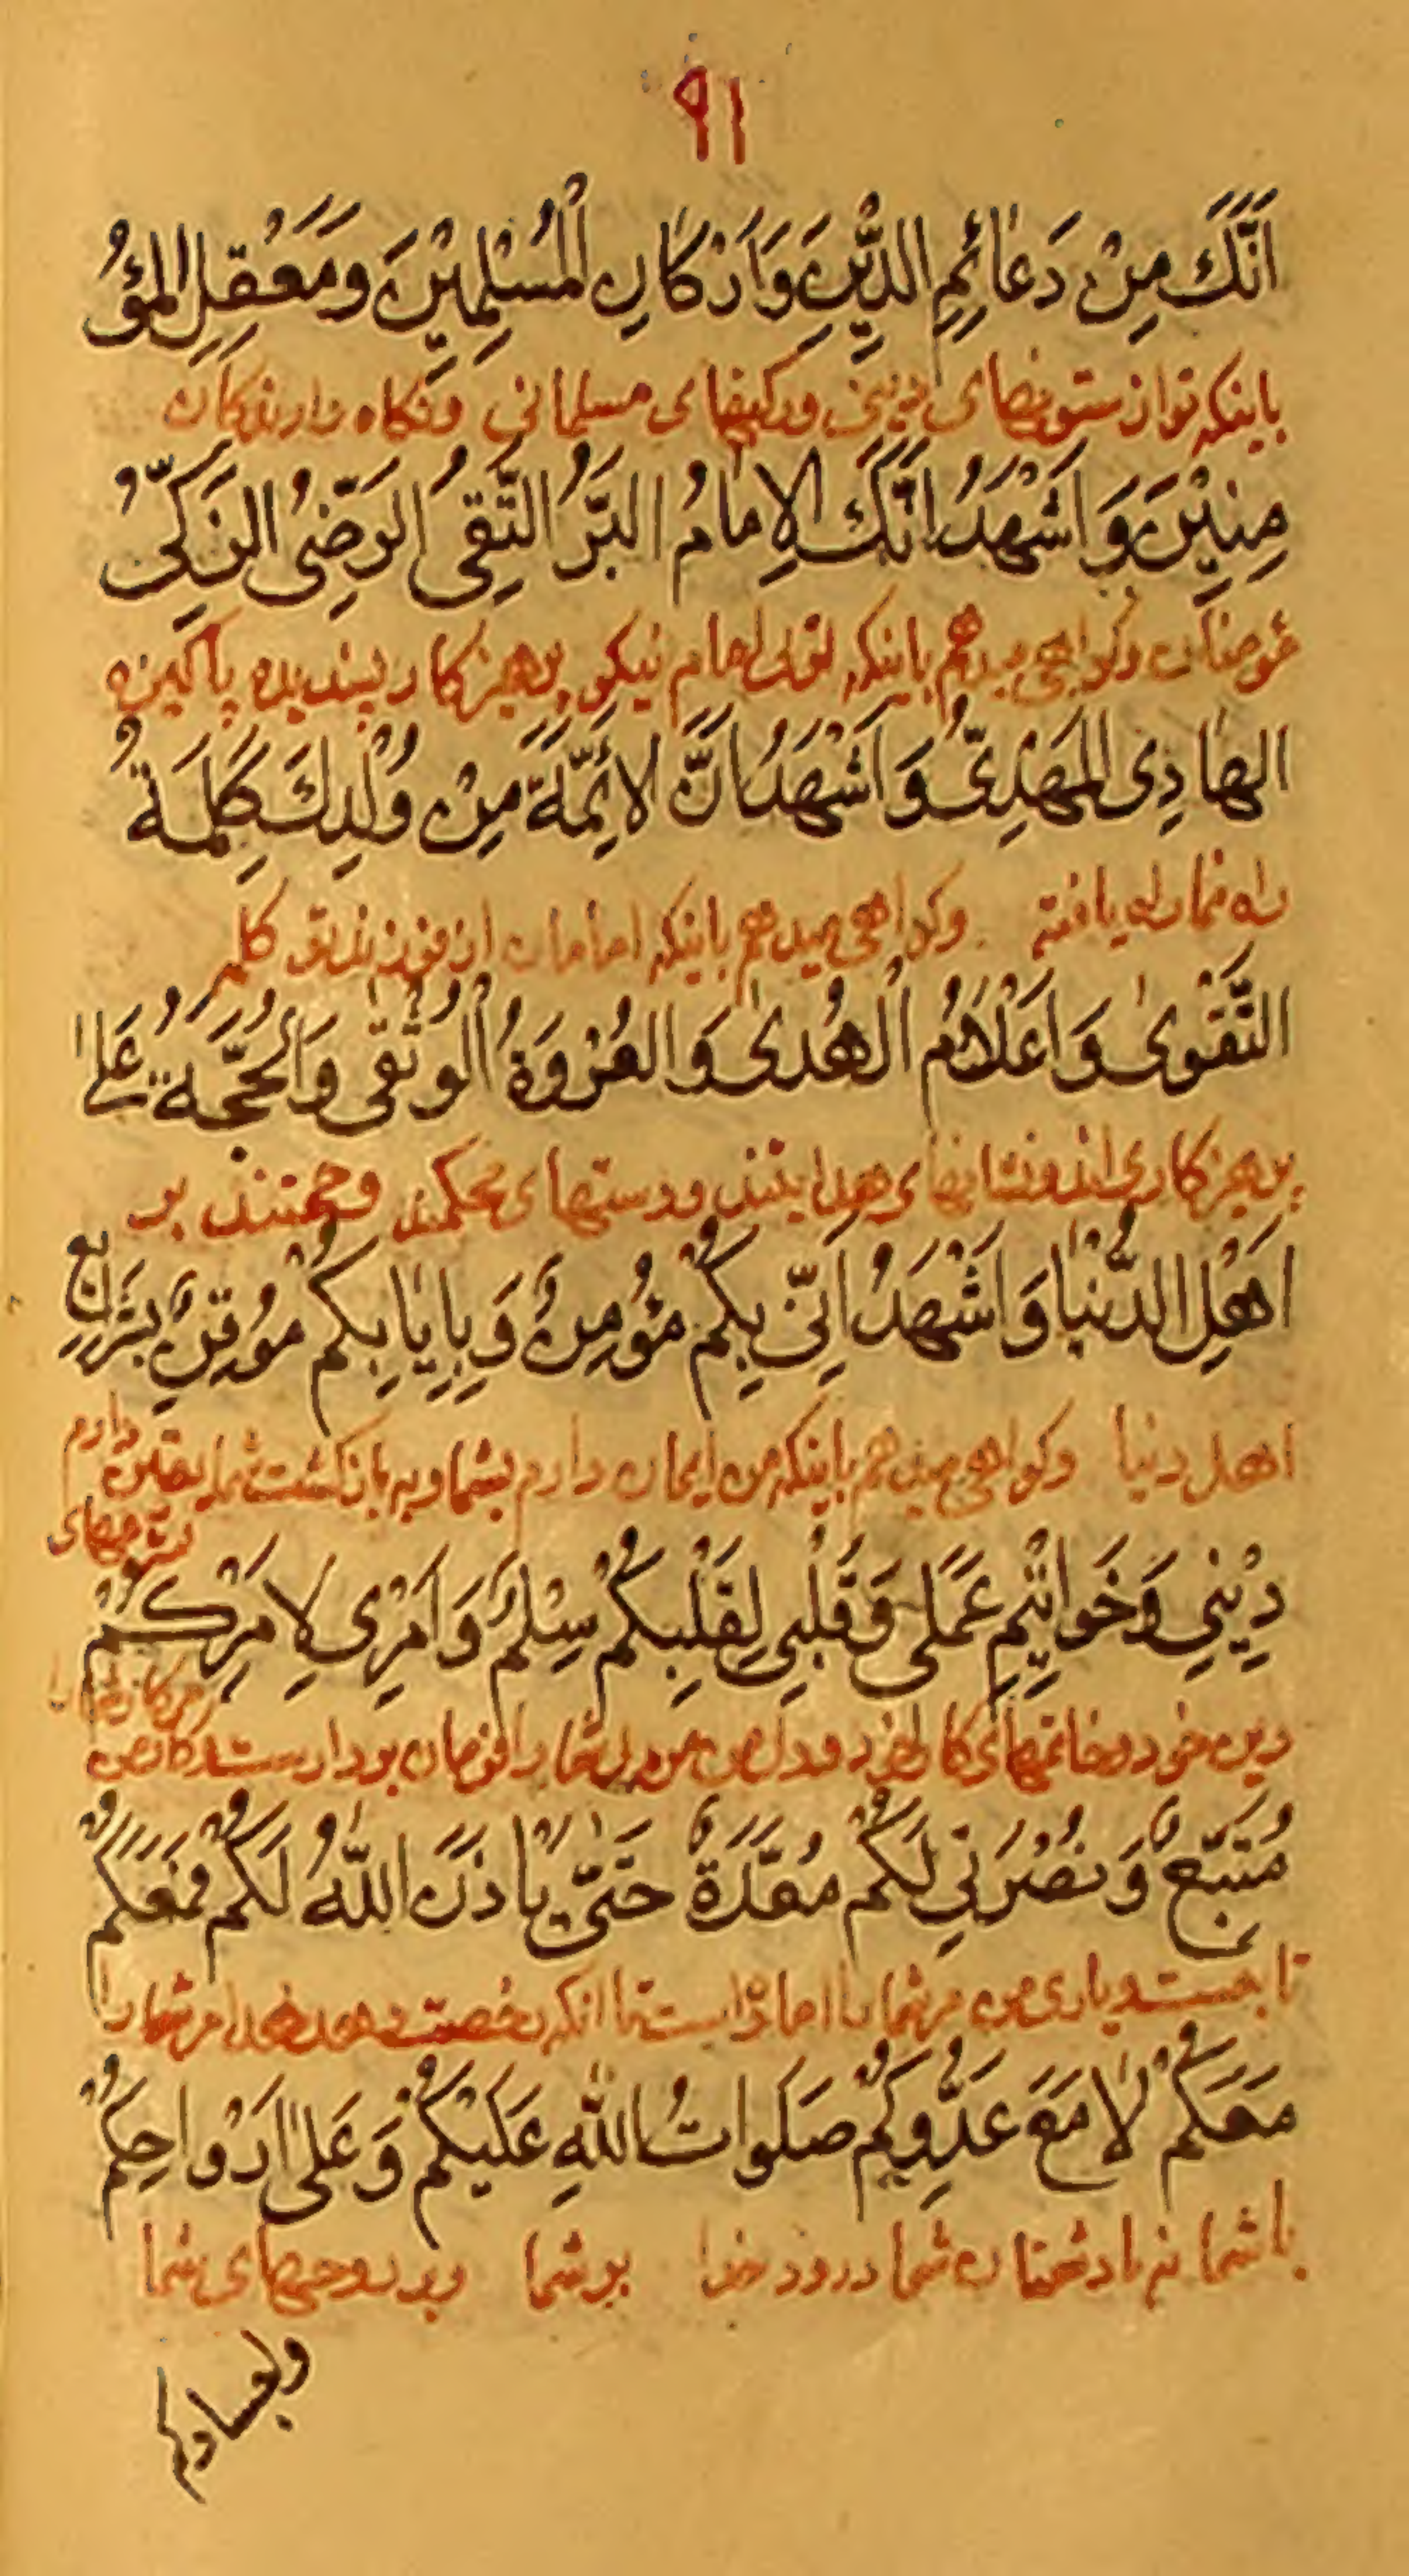 ۹۱
اَنَّكَ مِنْ دَعٰائِمِ الدّٖينِ وَاَرْكٰانِ الْمُسْلِمٖينَ وَمَعْقِلِ الْمُؤْ
باینکه تو از ستونهای دینی و رکنهای مسلمانی ونکاه دارندکان
مِنٖينَ وَاَشْهَدُ اَنَّكَ الاِمٰامُ البَرُّ التَّقِىُّ الرَضِّىُ الزَكِىُّ
مؤمنان وکواهی میدهم باینکه توئی امام نیکو پرهیزکار پسندیده پاکیزه
الهٰادِى المَهْدِىُّ وَاَشْهَدُ اَنَّ لاَئِمَّةَ مِنْ وُلْدِكَ كَلِمَةُ
راه نما راه یافته وکواهی میدهم باینکه امامان از فرزند تو کلمه
التَّقْوىٰ وَاَعْلٰامُ الْهُدىٰ وَالعُرْوَةُ الْوُثْقٰى وَالْحُجَّةُ عَلىٰ
پرهیزکاری اند ونشانهای هدایتند ودستهای محکمند وحجتند بر
اَهْلِ الدُّنْيٰا وَاَشْهَدُ اَنّٖى بِكُمْ مُؤْمِنٌ وَبِاِيٰابِكُمْ مُوْقِنٌ بِشَرٰايِعِ
اهل دنیا وکواهی میدهم باینکه من ایمان دارم بشما وبه بازکشت شما یقین دارم
بشرعهای
دٖينٖى وَخَوٰاتٖيمِ عَمَلى وَقَلْبى لِقَلْبِكُمْ سِلْمٌ وَاَمْرٖى لِاَمْرِكُمْ
دین خود وخاتمهای کار خود ودل من مر دل شما را فرمان بردار است وکار من
مُتَّبِعٌ وَنُصْرَتٖى لَكُمْ مُعَدَّةٌ حَتّٰى يَاْذَنَ اللّٰهُ لَكُمْ فَمَعَكُمْ
تابع است ویاری من مر شما را اماده است تا انکه رخصت دهد خدا مر شما را
مَعَكُمْ لٰا مَعَ عَدُّوِكُمْ صَلَوٰاتُ اللّٰهِ عَلَيْكُمْ وَعَلىٰ اَرْوٰاحِكُمْ
با شما نه با دشمنان شما درود خدا بر شما وبر روحهای شما